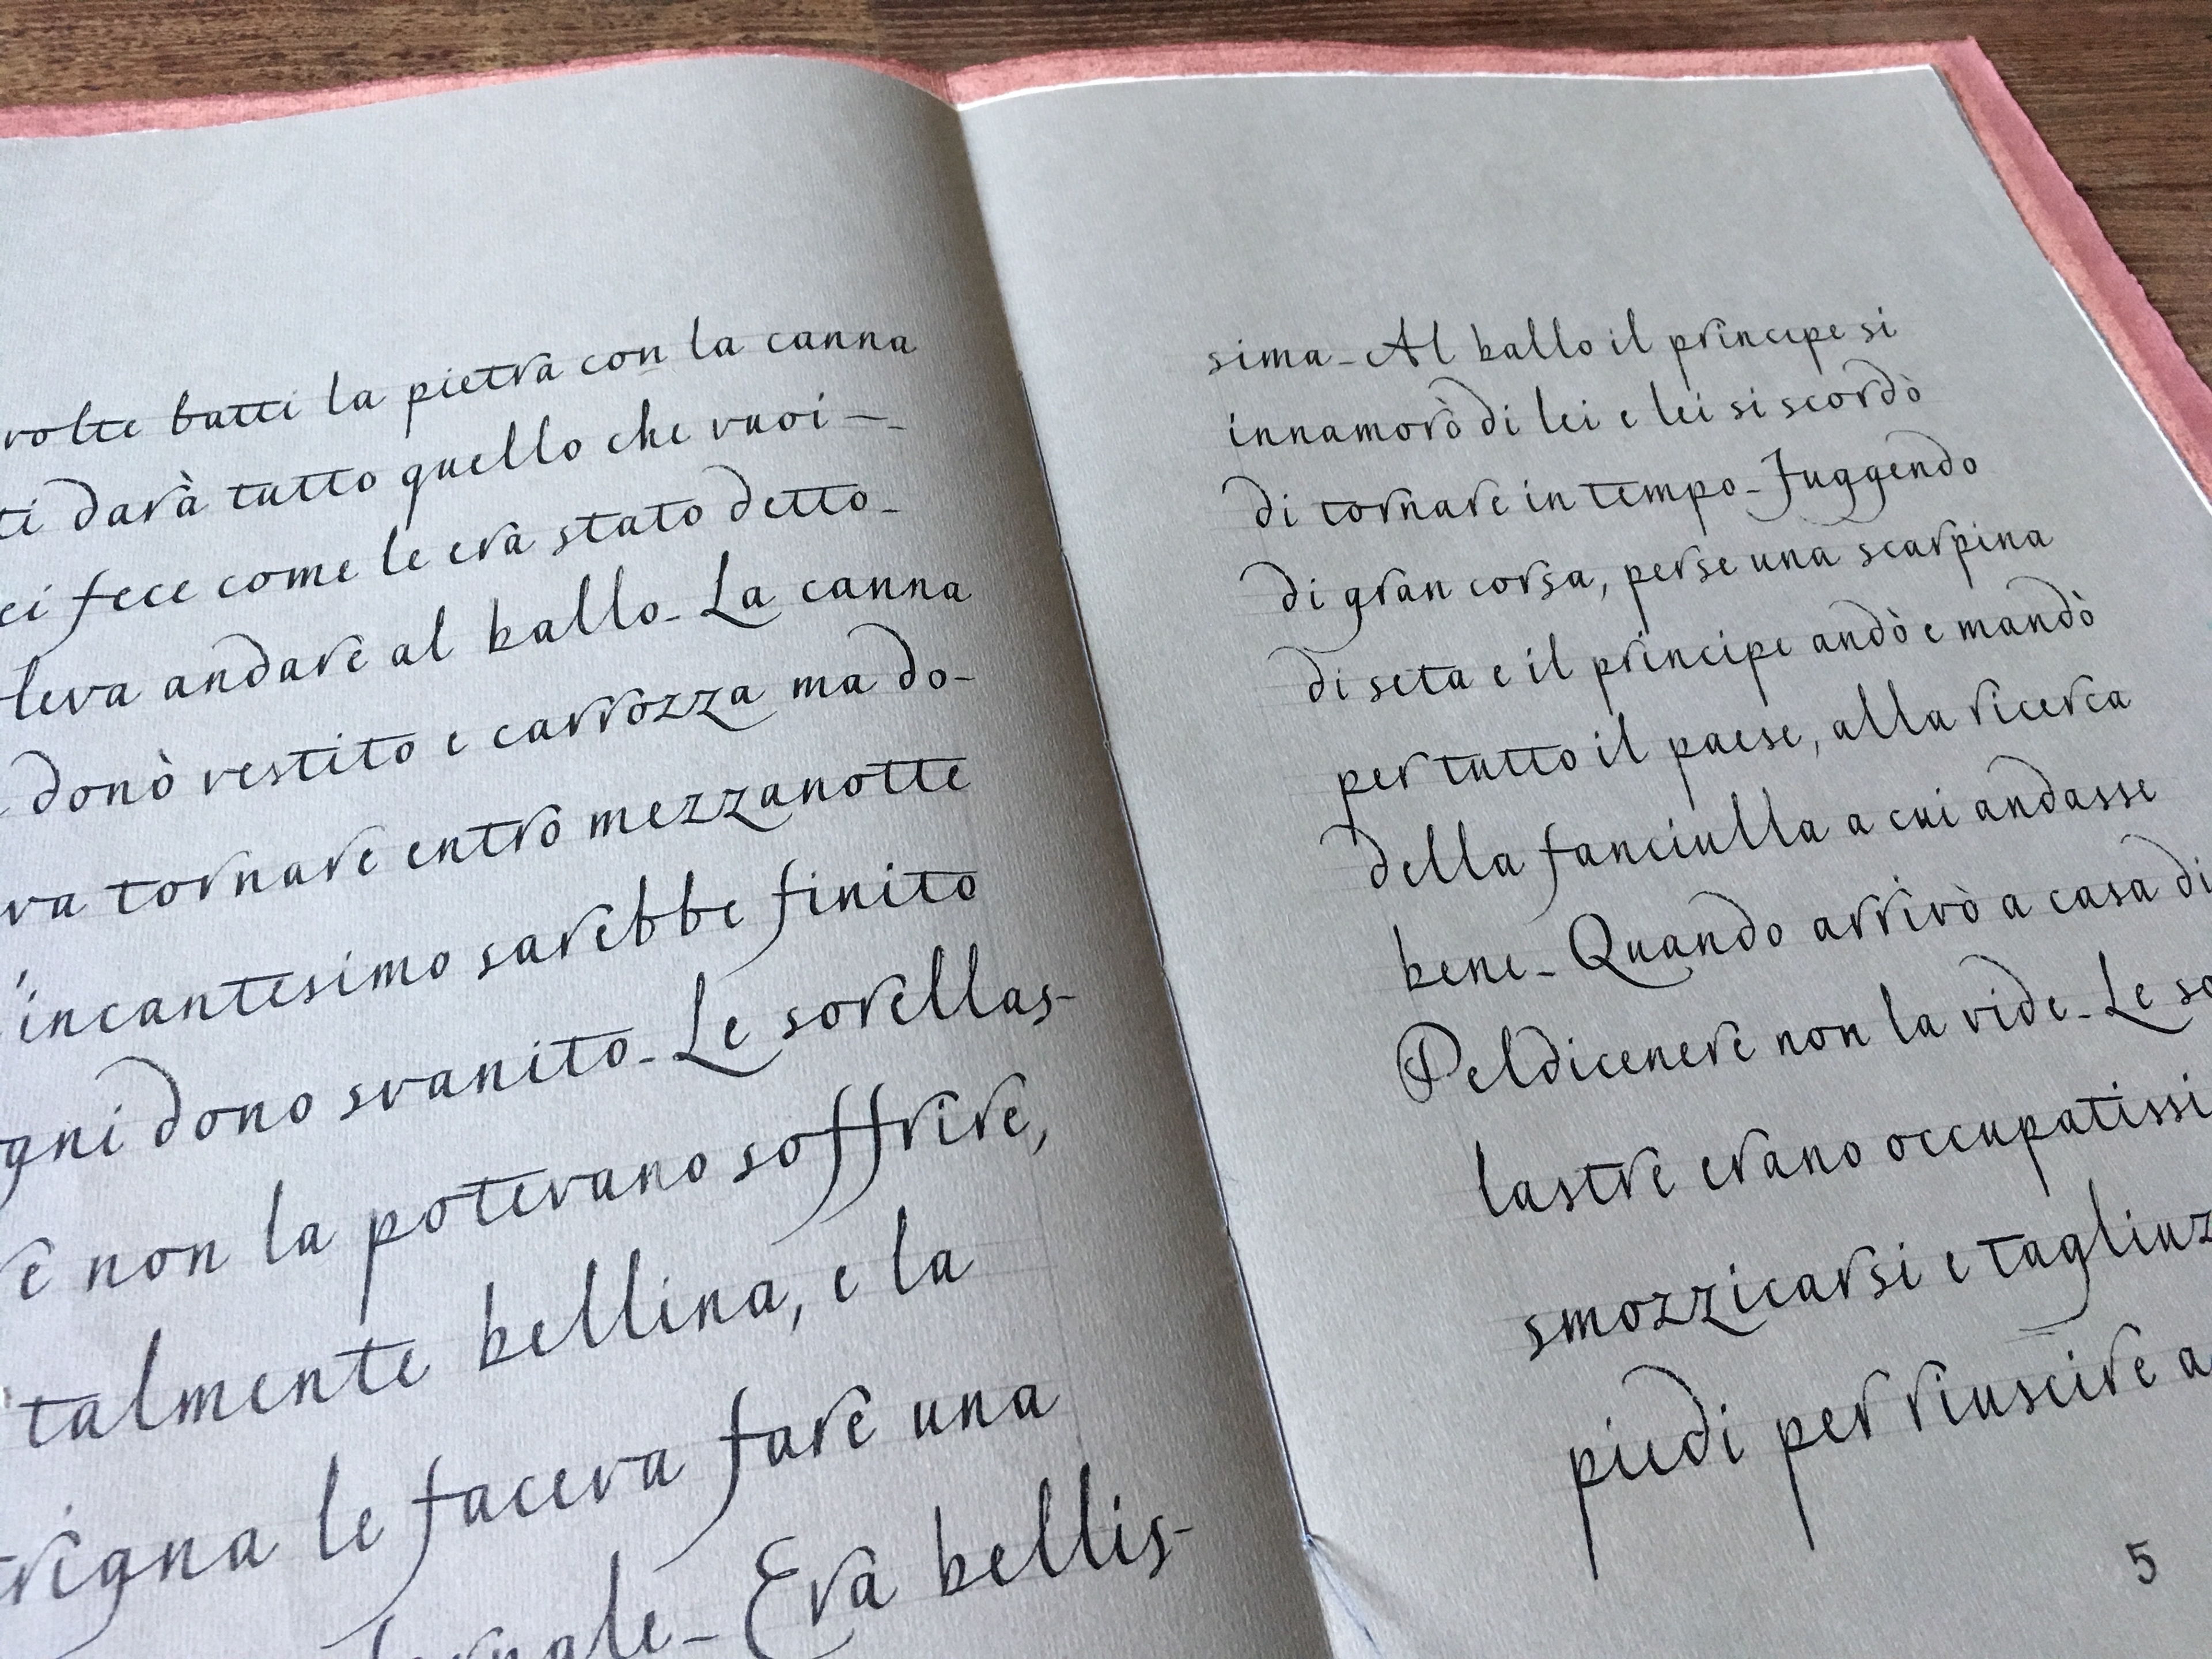 volte batti la pietra con la canna
ti darà tutto quello che vuoi –.
ei fece come le era stato detto.
leva andare al ballo. La canna
donò vestito e carrozza ma do-
va tornare entro mezzanotte
'incantesimo sarebbe finito
gni dono svanito. Le sorellas-
re non la potevano soffrire,
talmente bellina, e la
rigna le faceva fare una
Era bellis-
sima. Al ballo il principe si
innamorò di lei e lei si scordò
di tornare in tempo. Fuggendo
di gran corsa, perse una scarpina
di seta e il principe andò e mandò
per tutto il paese, alla ricerca
della fanciulla a cui andasse
bene. Quando arrivò a casa di
Peldicenere non la vide. Le so
lastre erano occupatissi
smozzicarsi e tagliuz
piedi per riuscire a
5